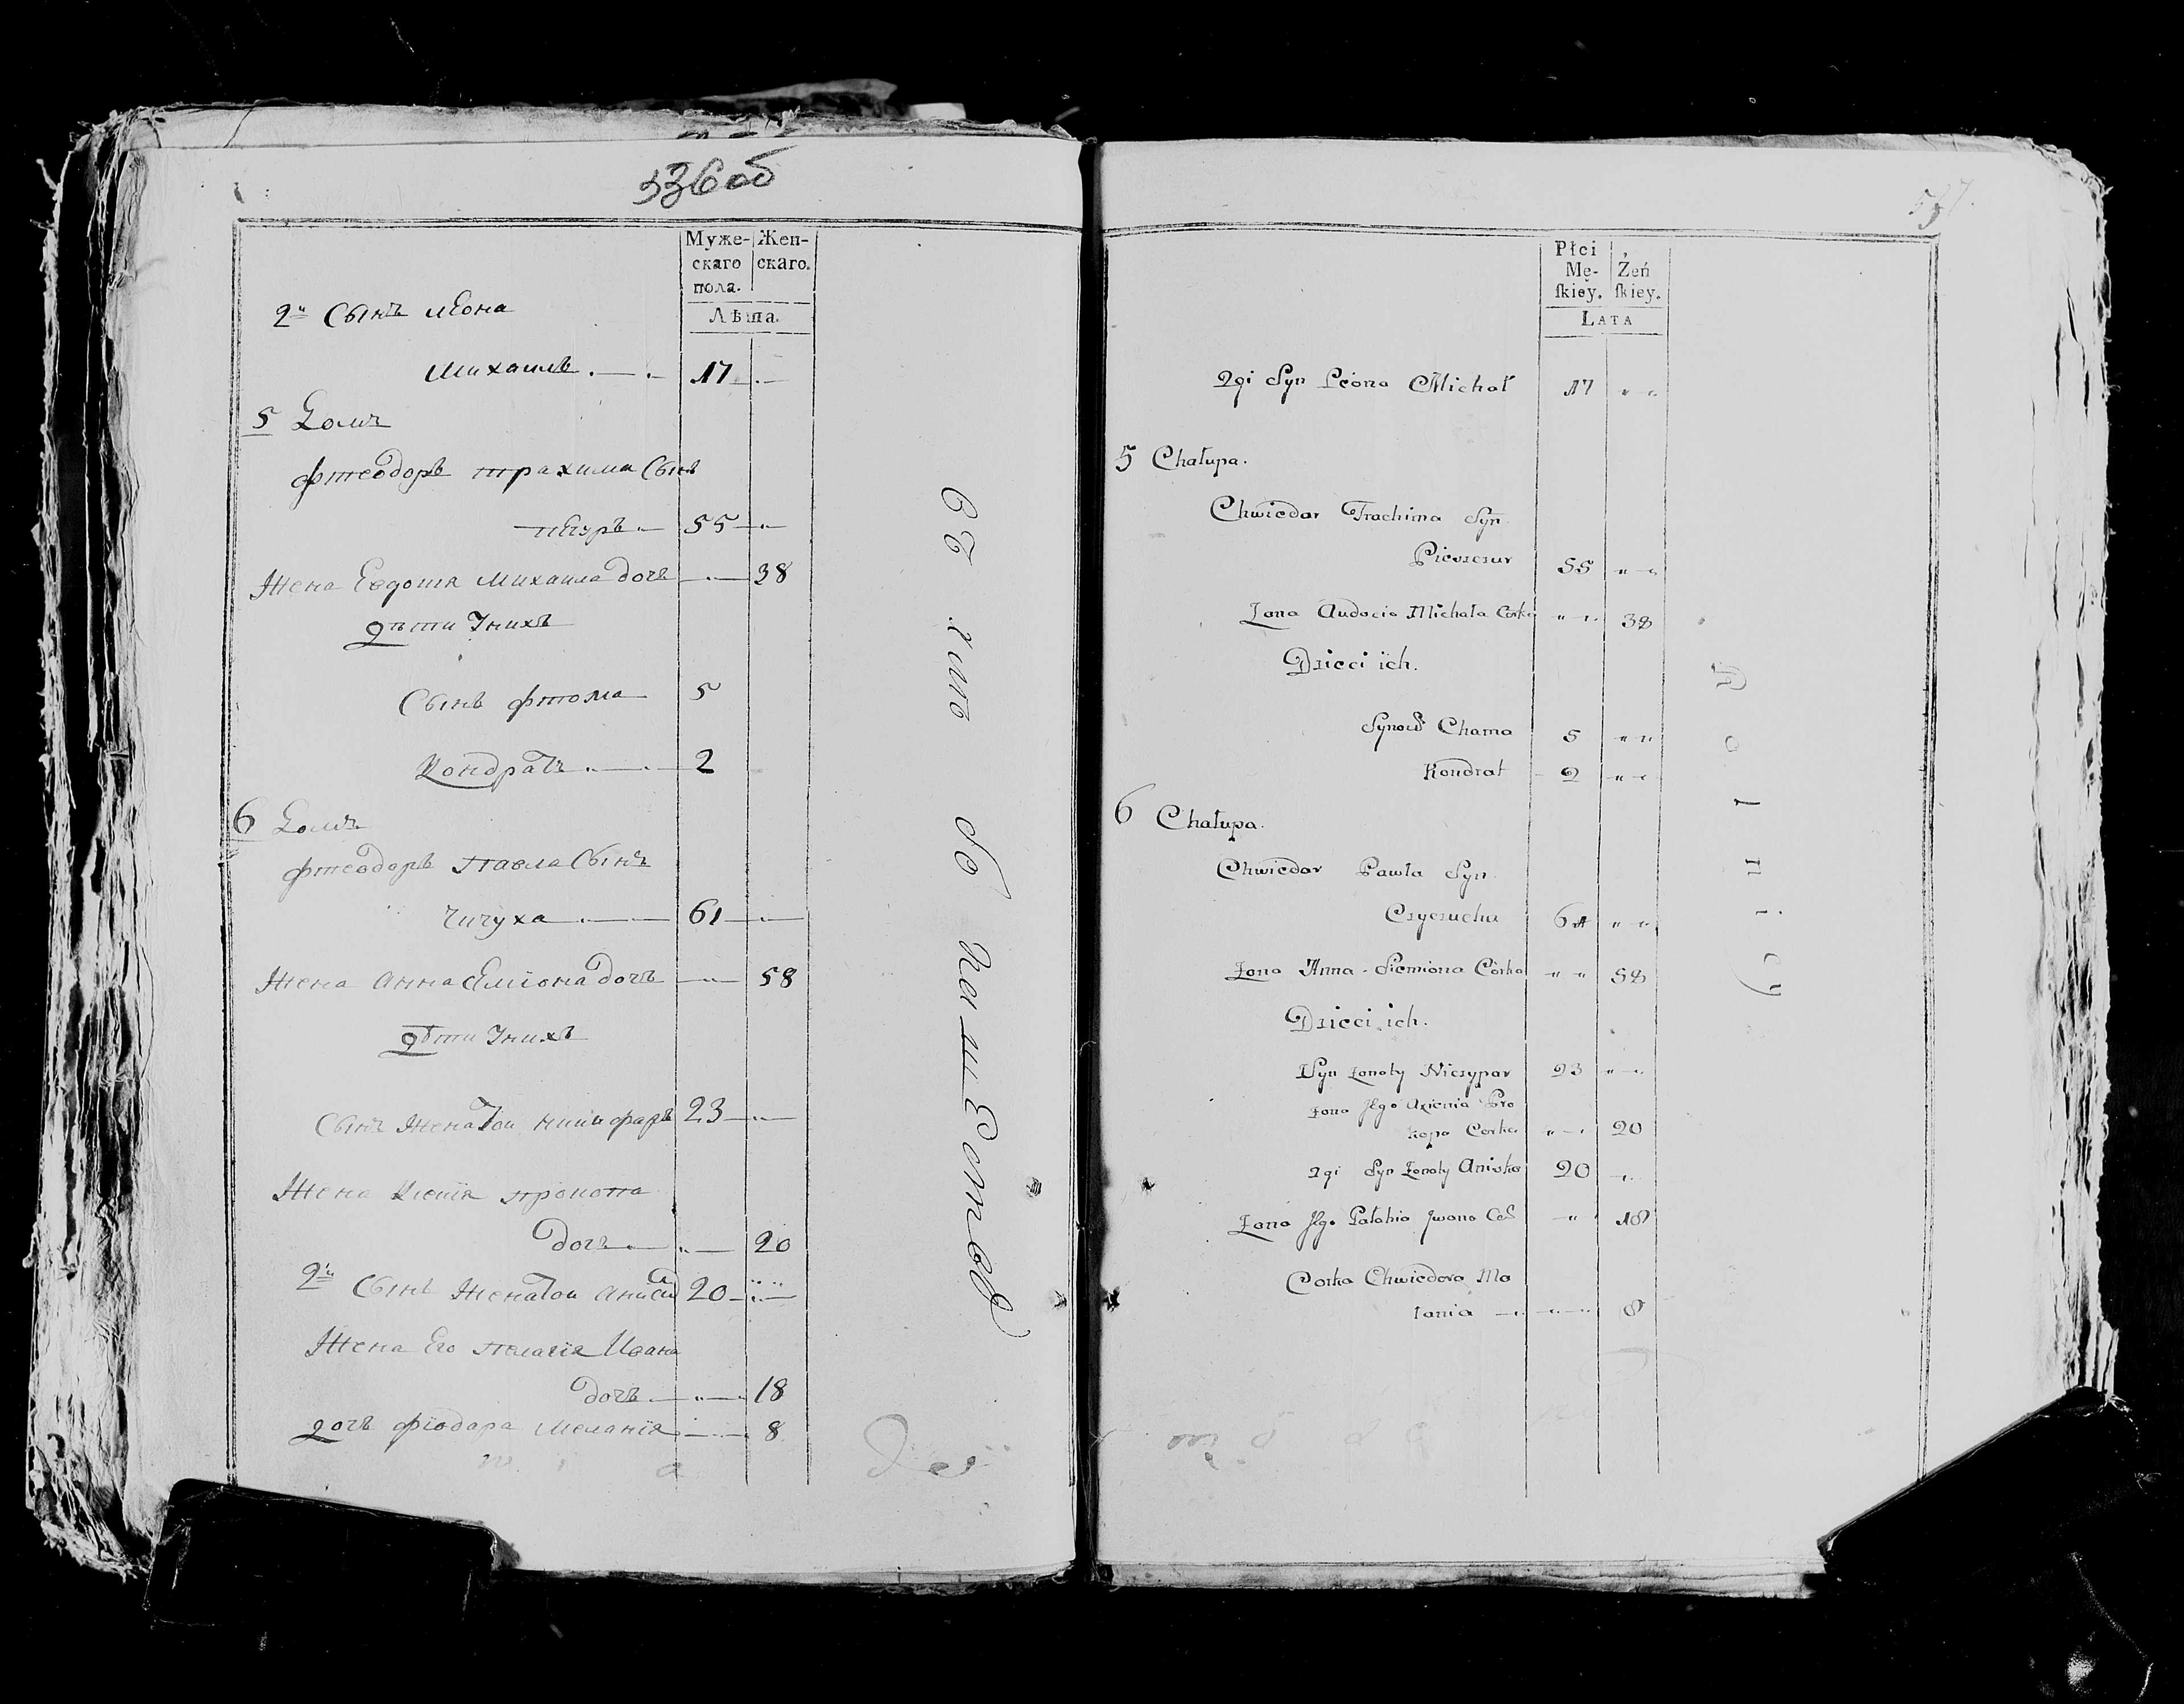 536 об
Муже-
скаго
пола.
Жен-
скаго.
Лѣта.
2й Сынъ лѣона
Михаилъ 17
5 Домъ
фтеодоръ трахима Сынъ
55
Жена Евдотя Михаила дочъ 38
дѣти Ународ
Сынъ фтома 5
Кондратъ 2
6 Домъ
фтеодоръ павла Сынъ
Чичуха 61
Жена Анна Сѣмїона дочъ 58
дѣти У нихъ
Сынъ Женатои никифаръ 23
Жена Ксенїя прокопа
дочъ 20
2й Сынъ Женатои 20
Жена Его пелагїя Ивана
дочъ 18
дочъ фїодара Меланїя 8
537
Płci
Mę-
skiey.
Żeń
skiey.
LATA
2gi Syn Leona Michał 17
5 Chałupa.
Chwiedor Trachima Syn
55
Zona Audocia Michała Corka 38
Dzieci ich.
Synow Chama 5
Kondrat 2
6 Chałupa.
Chwiedor Pawła Syn
Czyczucha 61
Zona Anna Siemiona Córka 58
Dzieci ich.
Syn żonaty Niczypor 23
Zona Jego Axienia Pro
kopa Corka 20
2gi Syn Zonaty Aniska 20
Zona Jego Pałahia Jwana Cor 18
Corka Chwiedora Ma
łania 8